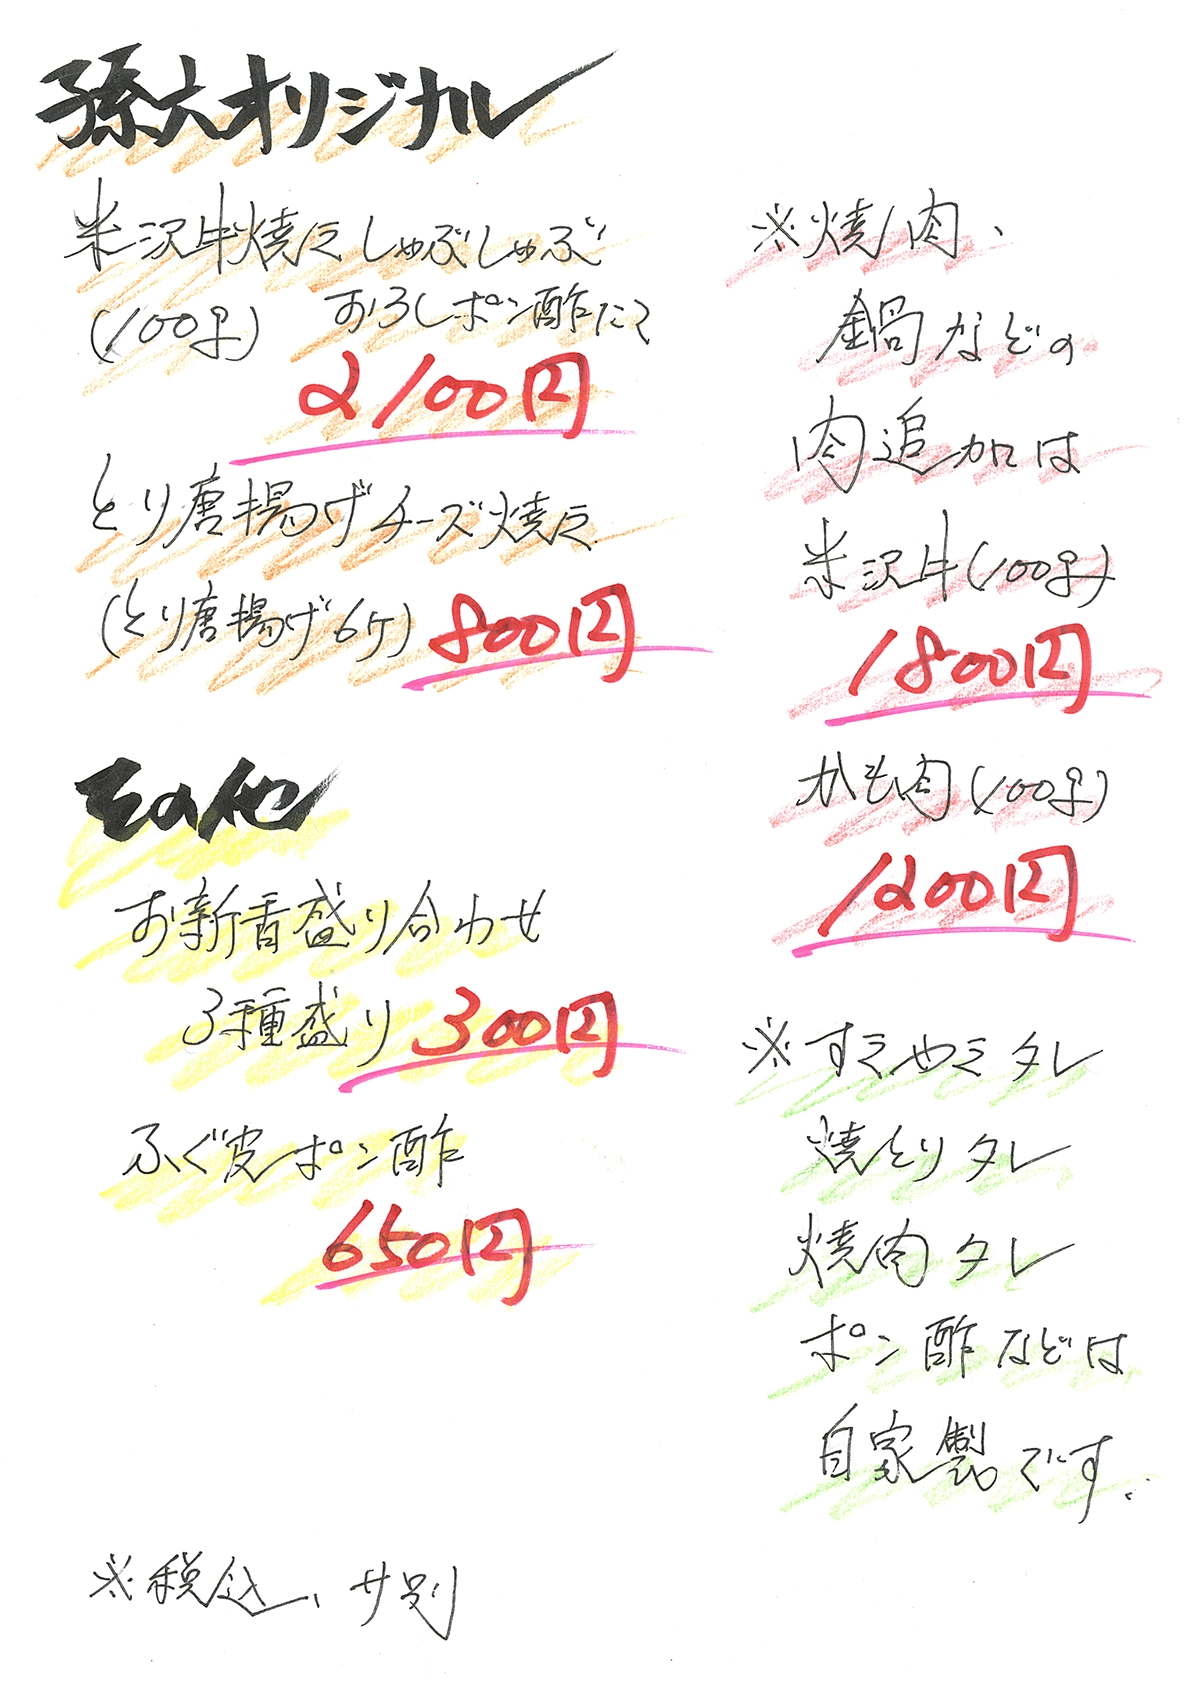 孫六オリジナル
米沢牛焼きしゃぶしゃぶ
(100g) おろしポン酢にて
2100円
とり唐揚げチーズ焼き
(とり唐揚げ6ケ) 800円
その他
お新香盛り合わせ
3種盛り 300円
ふぐ皮ポン酢
650円
※税込、サ別
※焼肉、
鍋などの
肉追加は
米沢牛(100g)
1800円
かも肉(100g)
1200円
※すきやきタレ
焼とりタレ
焼肉タレ
ポン酢などは
自家製です。